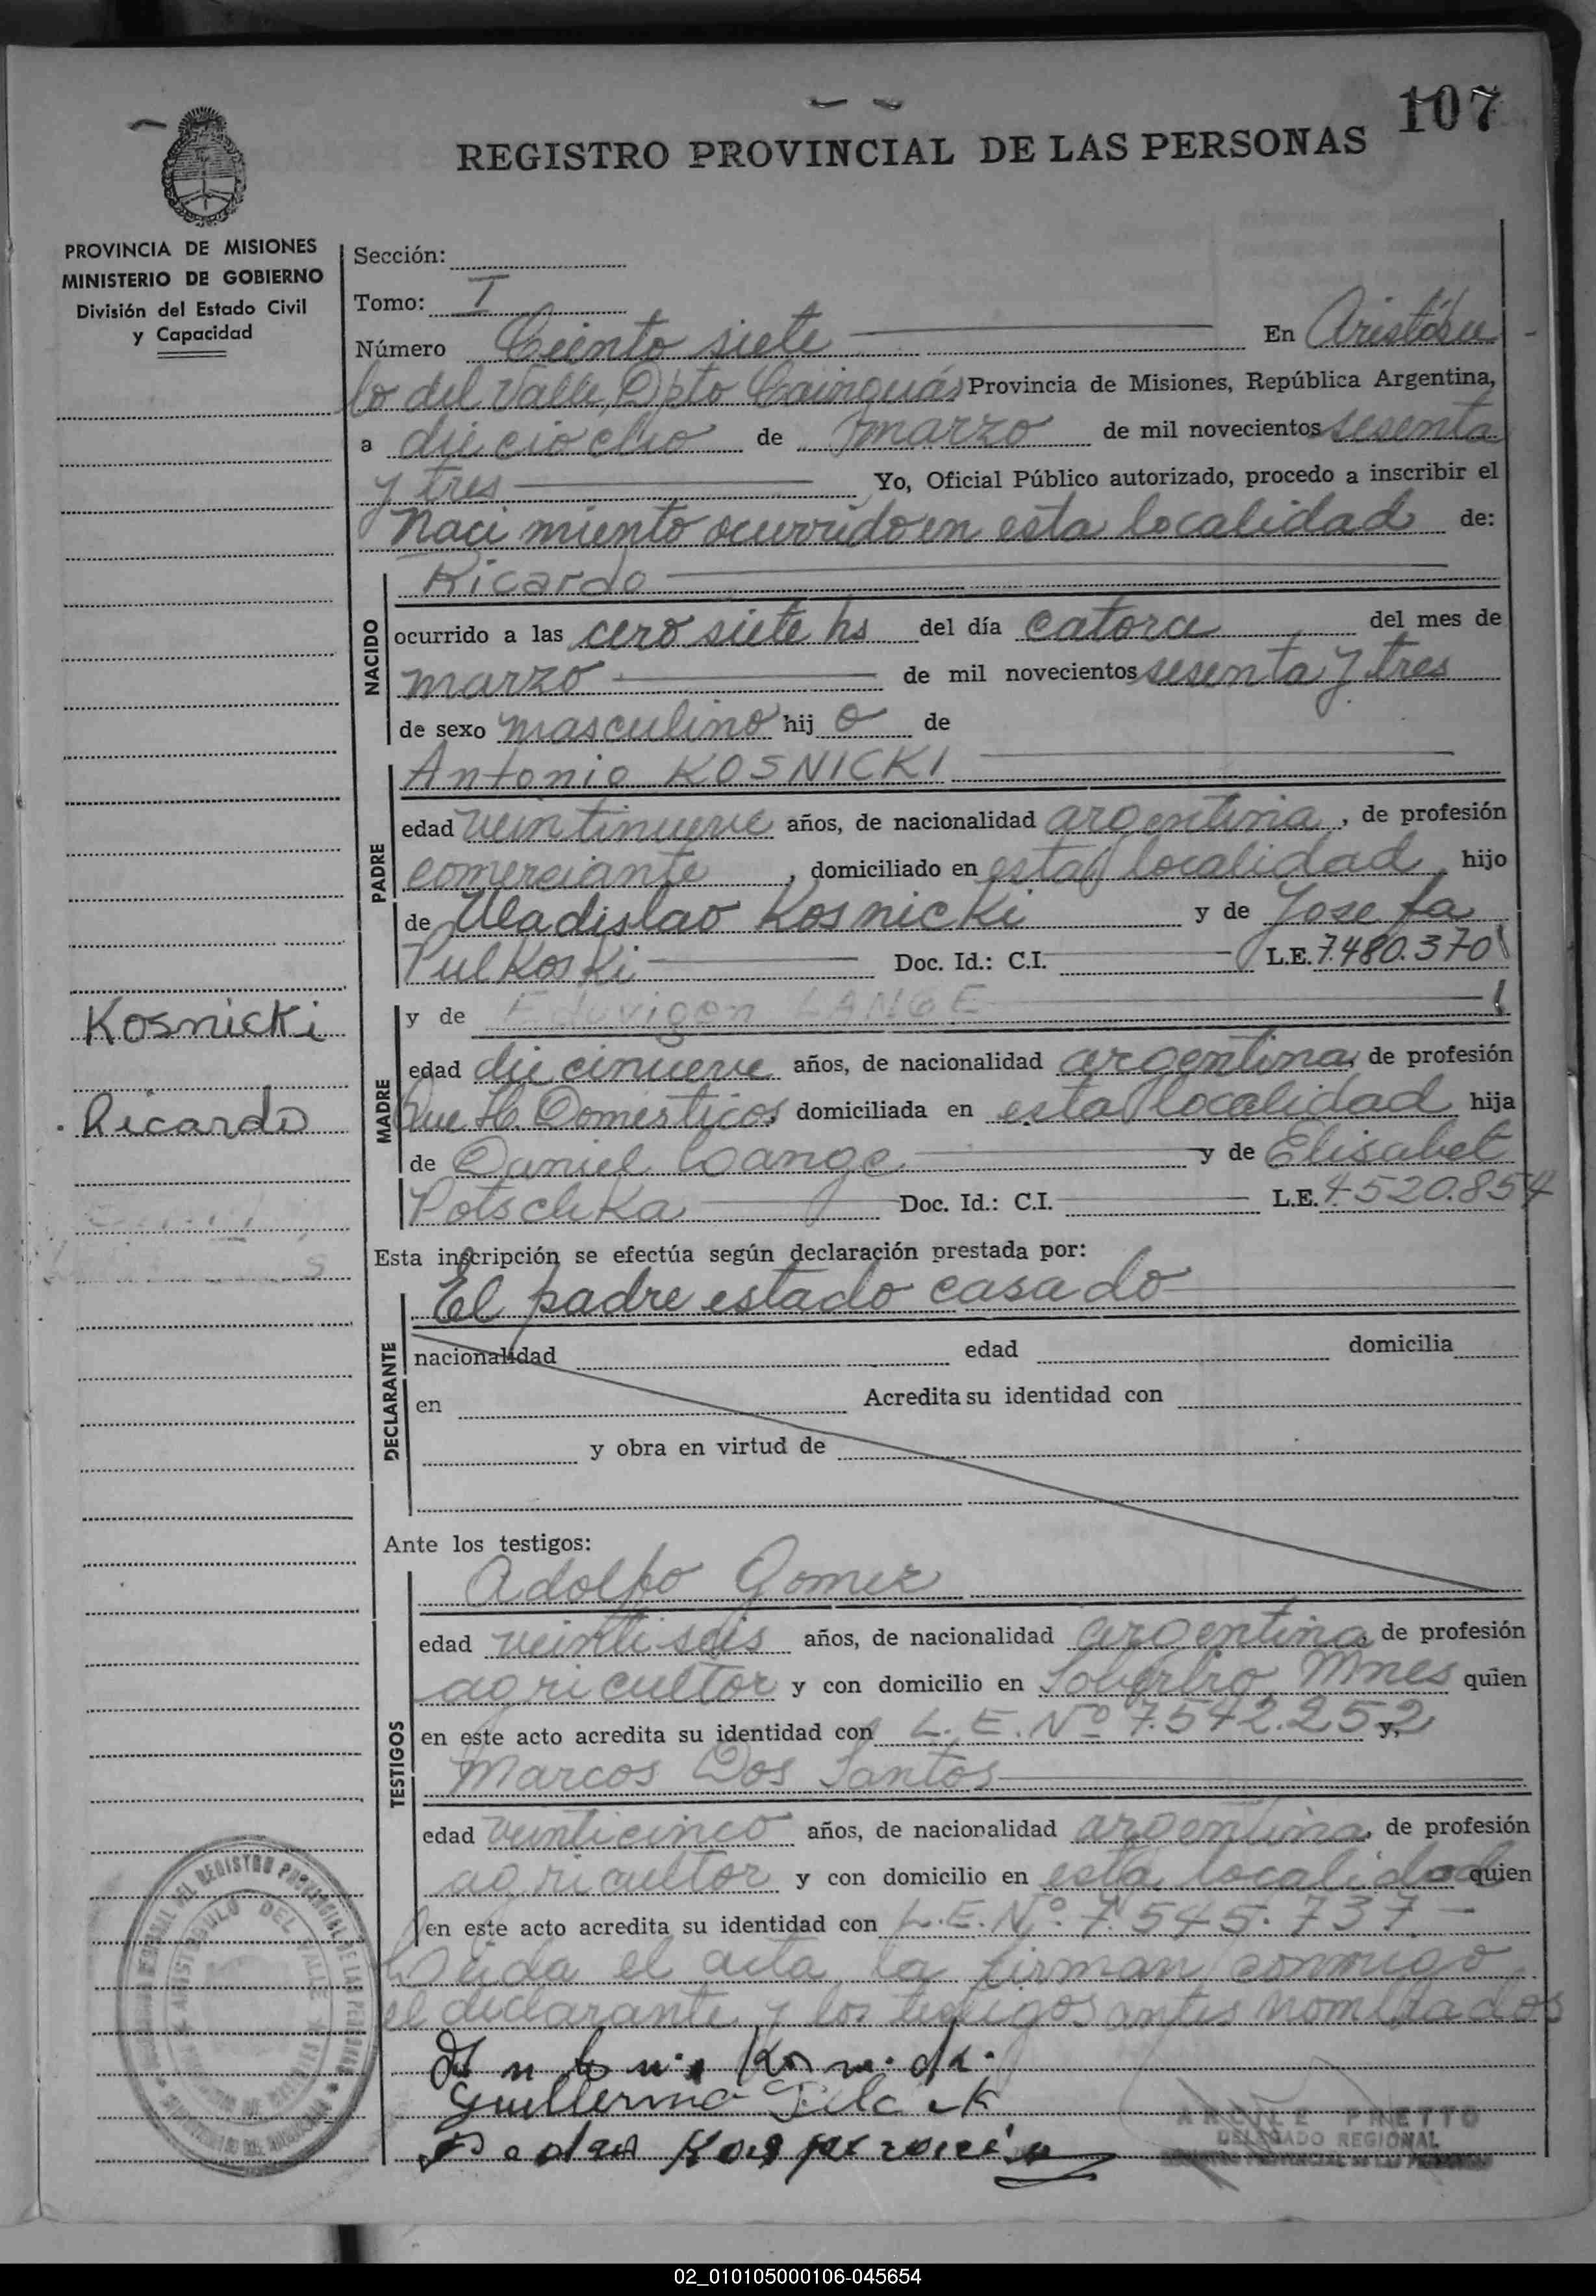 107
REGISTRO PROVINCIAL DE LAS PERSONAS
PROVINCIA DE MISIONES
MINISTERIO DE GOBIERNO
División del Estado Civil
y Capacidad
Sección:
Tomo: I
Número Ciento siete En Aristóbu
lo del Valle, Dpto Cainguás Provincia de Misiones, República Argentina,
a dieciocho de marzo de mil novecientos sesenta
y tres Yo, Oficial Público autorizado, procedo a inscribir el
Nacimiento ocurrido en esta localidad de:
NACIDO
Ricardo
ocurrido a las cero siete hs del día catorce del mes de
marzo de mil novecientos sesenta y tres
de sexo masculino hijo de
PADRE
Antonio KOSNICKI
edad veintinueve años, de nacionalidad argentina, de profesión
comerciante, domiciliado en esta localidad, hijo
de Uladislao Kosnicki y de Josefa
Pulkoski Doc. Id.: C.I. L.E. 7.480.370
MADRE
y de Eduvigen LANGE
edad diecinueve años, de nacionalidad argentina, de profesión
Que H. Domésticos domiciliada en esta localidad hija
de Daniel Lange y de Elisabet
Potschka Doc. Id.: C.I. L.E. 4.520.854
Kosnicki
Ricardo
Esta inscripción se efectúa según declaración prestada por:
DECLARANTE
El padre estado casado
nacionalidad edad domicilia
en Acredita su identidad con
y obra en virtud de
Ante los testigos:
TESTIGOS
Adolfo Gomez
edad veintiseis años, de nacionalidad argentina, de profesión
agricultor y con domicilio en Soberbio Mnes quien
en este acto acredita su identidad con L.E. Nº 7.542.252 y,
Marcos Dos Santos
edad veinticinco años, de nacionalidad argentina, de profesión
agricultor y con domicilio en esta localidad quien
en este acto acredita su identidad con L.E. Nº 7.545.737
Leida el acta la firman conmigo
el declarante y los testigos antes nombrados
Antonio
Guillermo
DELEGADO REGIONAL
ARISTOBULO DEL VALLE
02_010105000106-045654